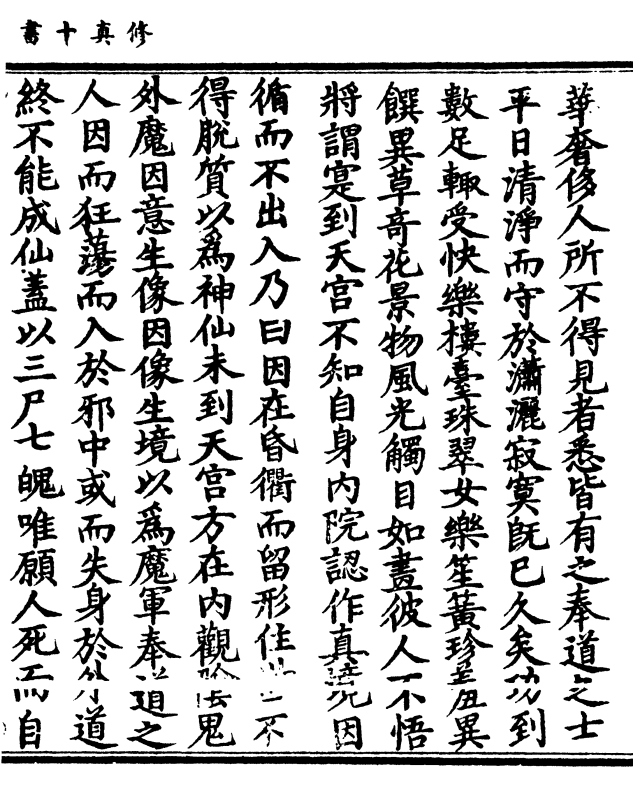 修真十書
華奢侈人所不得見者悉皆有之奉道之士
平日清淨而守於瀟灑寂寞旣已久矣功到
數足輙受快樂樓臺珠翠女樂笙簧珍羞異
饌異草奇花景物風光觸目如畫彼人不悟
將謂寔到天宮不知自身內院認作真境因
循而不出入乃曰因在昏衢而留形住世不
得脫質以爲神仙未到天宮方在內觀陰鬼
外魔因意生像因像生境以爲魔軍奉道之
人因而狂蕩而入於邪中或而失身於外道
終不能成仙蓋以三尸七魄唯願人死而自